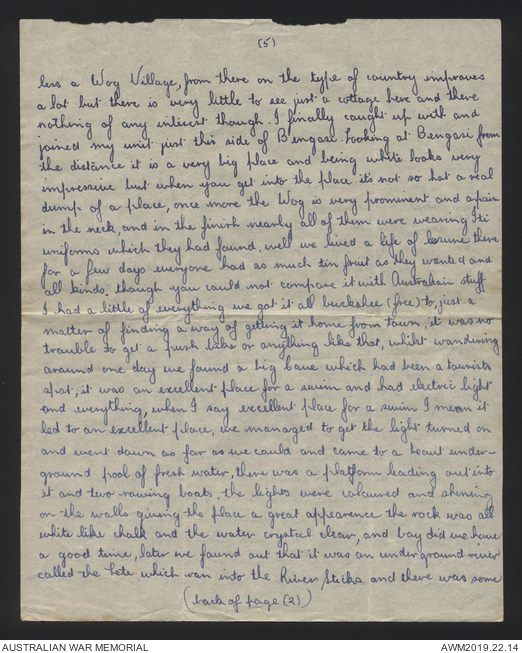 (5)
less a Wog Village, from there on the type of country improves
a lot but there is very little to see just a cottage here and there
nothing of any interest though. I finally caught up with and
joined my unit just this side of Bengasi. Looking at Bengasi from
the distance it is a very big place and being white looks very
impressive but when you get into the place it's not so hot a real
dump of a place, once more the Wog is very prominent and a pain
in the neck, and in the finish nearly all of them were wearing Iti
uniforms which they had found, well we lived a life of leisure there
for a few days everyone had as much tin fruit as they wanted and
all kinds, though you could not compare it with Australian stuff
I had a little of everything we got it all buckshee (free) to, just a
matter of finding a way of getting it home from town, it was no
trouble to get a push bike or anything like that, whilst wandering
around one day we found a big Cave which had been a tourists
spot; it was an excellent place for a swim and had electric light
and everything, when I say excellent place for a swim I mean it
led to an excellent place, we managed to get the light turned on
and went down as far as we could and came to a beaut under-
ground pool of fresh water, there was a platform leading out into
it and two rowing boats, the lights were coloured and shining
on the walls giving the place a great appearence the rock was all
white like chalk and the water crystal clear, and boy did we have
a good time, later we found out that it was an underground river
called the Lete which ran into the River Sticks and there was some
(back of page (2))
AUSTRALIAN WAR MEMORIAL
AWM2019.22.14